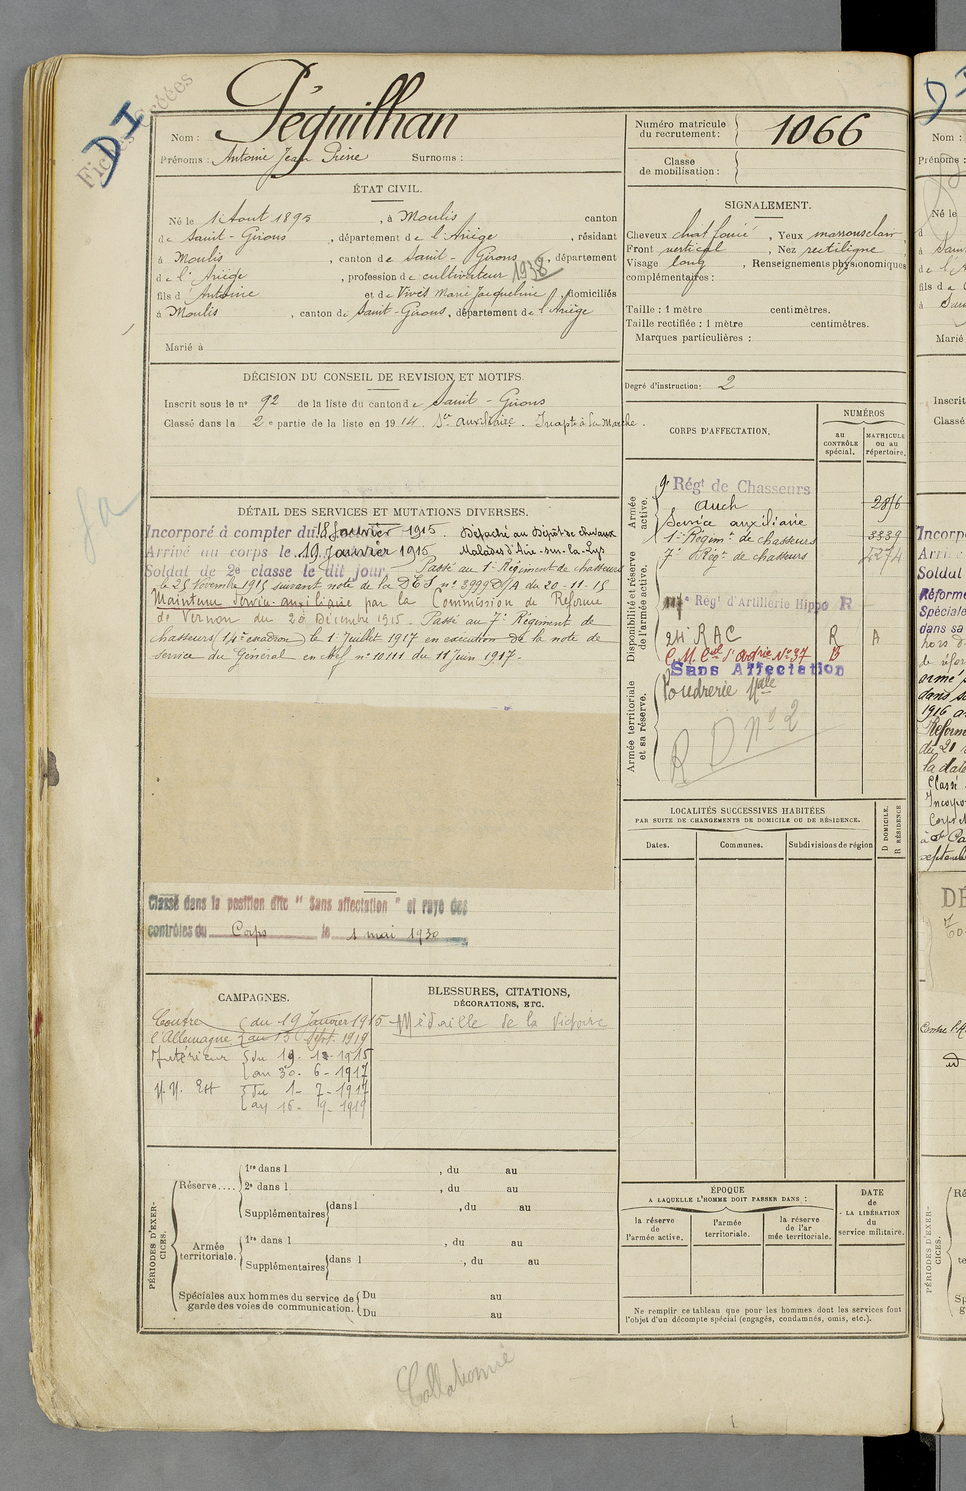 DI
Nom : Péquilhan
Prénoms : Antoine Jean Pierre Surnoms :
Numéro matricule du recrutement : 1066
Classe de mobilisation :
ÉTAT CIVIL.
Né le 1 Aout 1895, à Moulis canton
de Saint-Girons, département de l'Ariège, résidant
à Moulis, canton de Saint-Girons, département
de l'Ariège, profession de cultivateur 1938
fils d'Antoine et de Vivès Marie Jacqueline, domiciliés
à Moulis, canton de Saint-Girons, département de l'Ariège
Marié à
SIGNALEMENT.
Cheveux chat foncé, Yeux marrons clair,
Front vertical, Nez rectiligne
Visage long, Renseignements physionomiques
complémentaires :
Taille : 1 mètre centimètres.
Taille rectifiée : 1 mètre centimètres.
Marques particulières :
Degré d'instruction : 2
DÉCISION DU CONSEIL DE REVISION ET MOTIFS.
Inscrit sous le n° 92 de la liste du canton de Saint-Girons
Classé dans la 2e partie de la liste en 1914. Sce auxiliaire. Inapte à la Marche.
DÉTAIL DES SERVICES ET MUTATIONS DIVERSES.
Incorporé à compter du 18 Janvier 1915. Détaché au Dépôt de chevaux
Arrivé au corps le 19 Janvier 1915 Malades d'Aire-sur-la-Lys
Soldat de 2e classe le dit jour. Passé au 1er Régiment de chasseurs
le 25 Novembre 1915 suivant note de la DES n° 3999 D/A du 20-11-15
Maintenu Service auxiliaire par la Commission de Réforme
de Vernon du 20 Décembre 1915. Passé au 7e Régiment de
chasseurs (14e escadron) le 1er Juillet 1917 en exécution de la note de
service du Général en chef n° 10111 du 11 Juin 1917.
Classé dans la position dite "Sans affectation" et rayé des
contrôles du Corps le 1 mai 1930
CORPS D'AFFECTATION.
NUMÉROS
au CONTRÔLE spécial.
MATRICULE ou au répertoire.
Armée active.
9e Régt de Chasseurs
Auch
Service auxiliaire
1er Régimt de chasseurs 3339
7e Régt de chasseurs
Disponibilité et réserve de l'armée active.
Régt d'Artillerie Hippo R
24e RAC R A
Sans Affectation
Armée territoriale et sa réserve.
Poudrerie Nale
R D N° 2
LOCALITÉS SUCCESSIVES HABITÉES
PAR SUITE DE CHANGEMENTS DE DOMICILE OU DE RÉSIDENCE.
Dates. Communes. Subdivisions de région
D DOMICILE.
R RÉSIDENCE
CAMPAGNES.
Contre du 19 Janvier 1915
l'Allemagne au 15 Sept. 1919
Intérieur du 19-12-1915
au 30-6-1917
du 1-7-1917
au 16-9-1919
BLESSURES, CITATIONS,
DÉCORATIONS, ETC.
Médaille de la Victoire
PÉRIODES D'EXERCICES.
Réserve....
1re dans l , du au
2e dans l , du au
Supplémentaires dans l , du au
Armée territoriale.
1re dans l , du au
Supplémentaires dans l , du au
Spéciales aux hommes du service de garde des voies de communication.
Du au
Du au
ÉPOQUE
A LAQUELLE L'HOMME DOIT PASSER DANS :
la réserve de l'armée active.
l'armée territoriale.
la réserve de l'armée territoriale.
DATE de LA LIBÉRATION du service militaire.
Ne remplir ce tableau que pour les hommes dont les services font
l'objet d'un décompte spécial (engagés, condamnés, omis, etc.).
Collationné